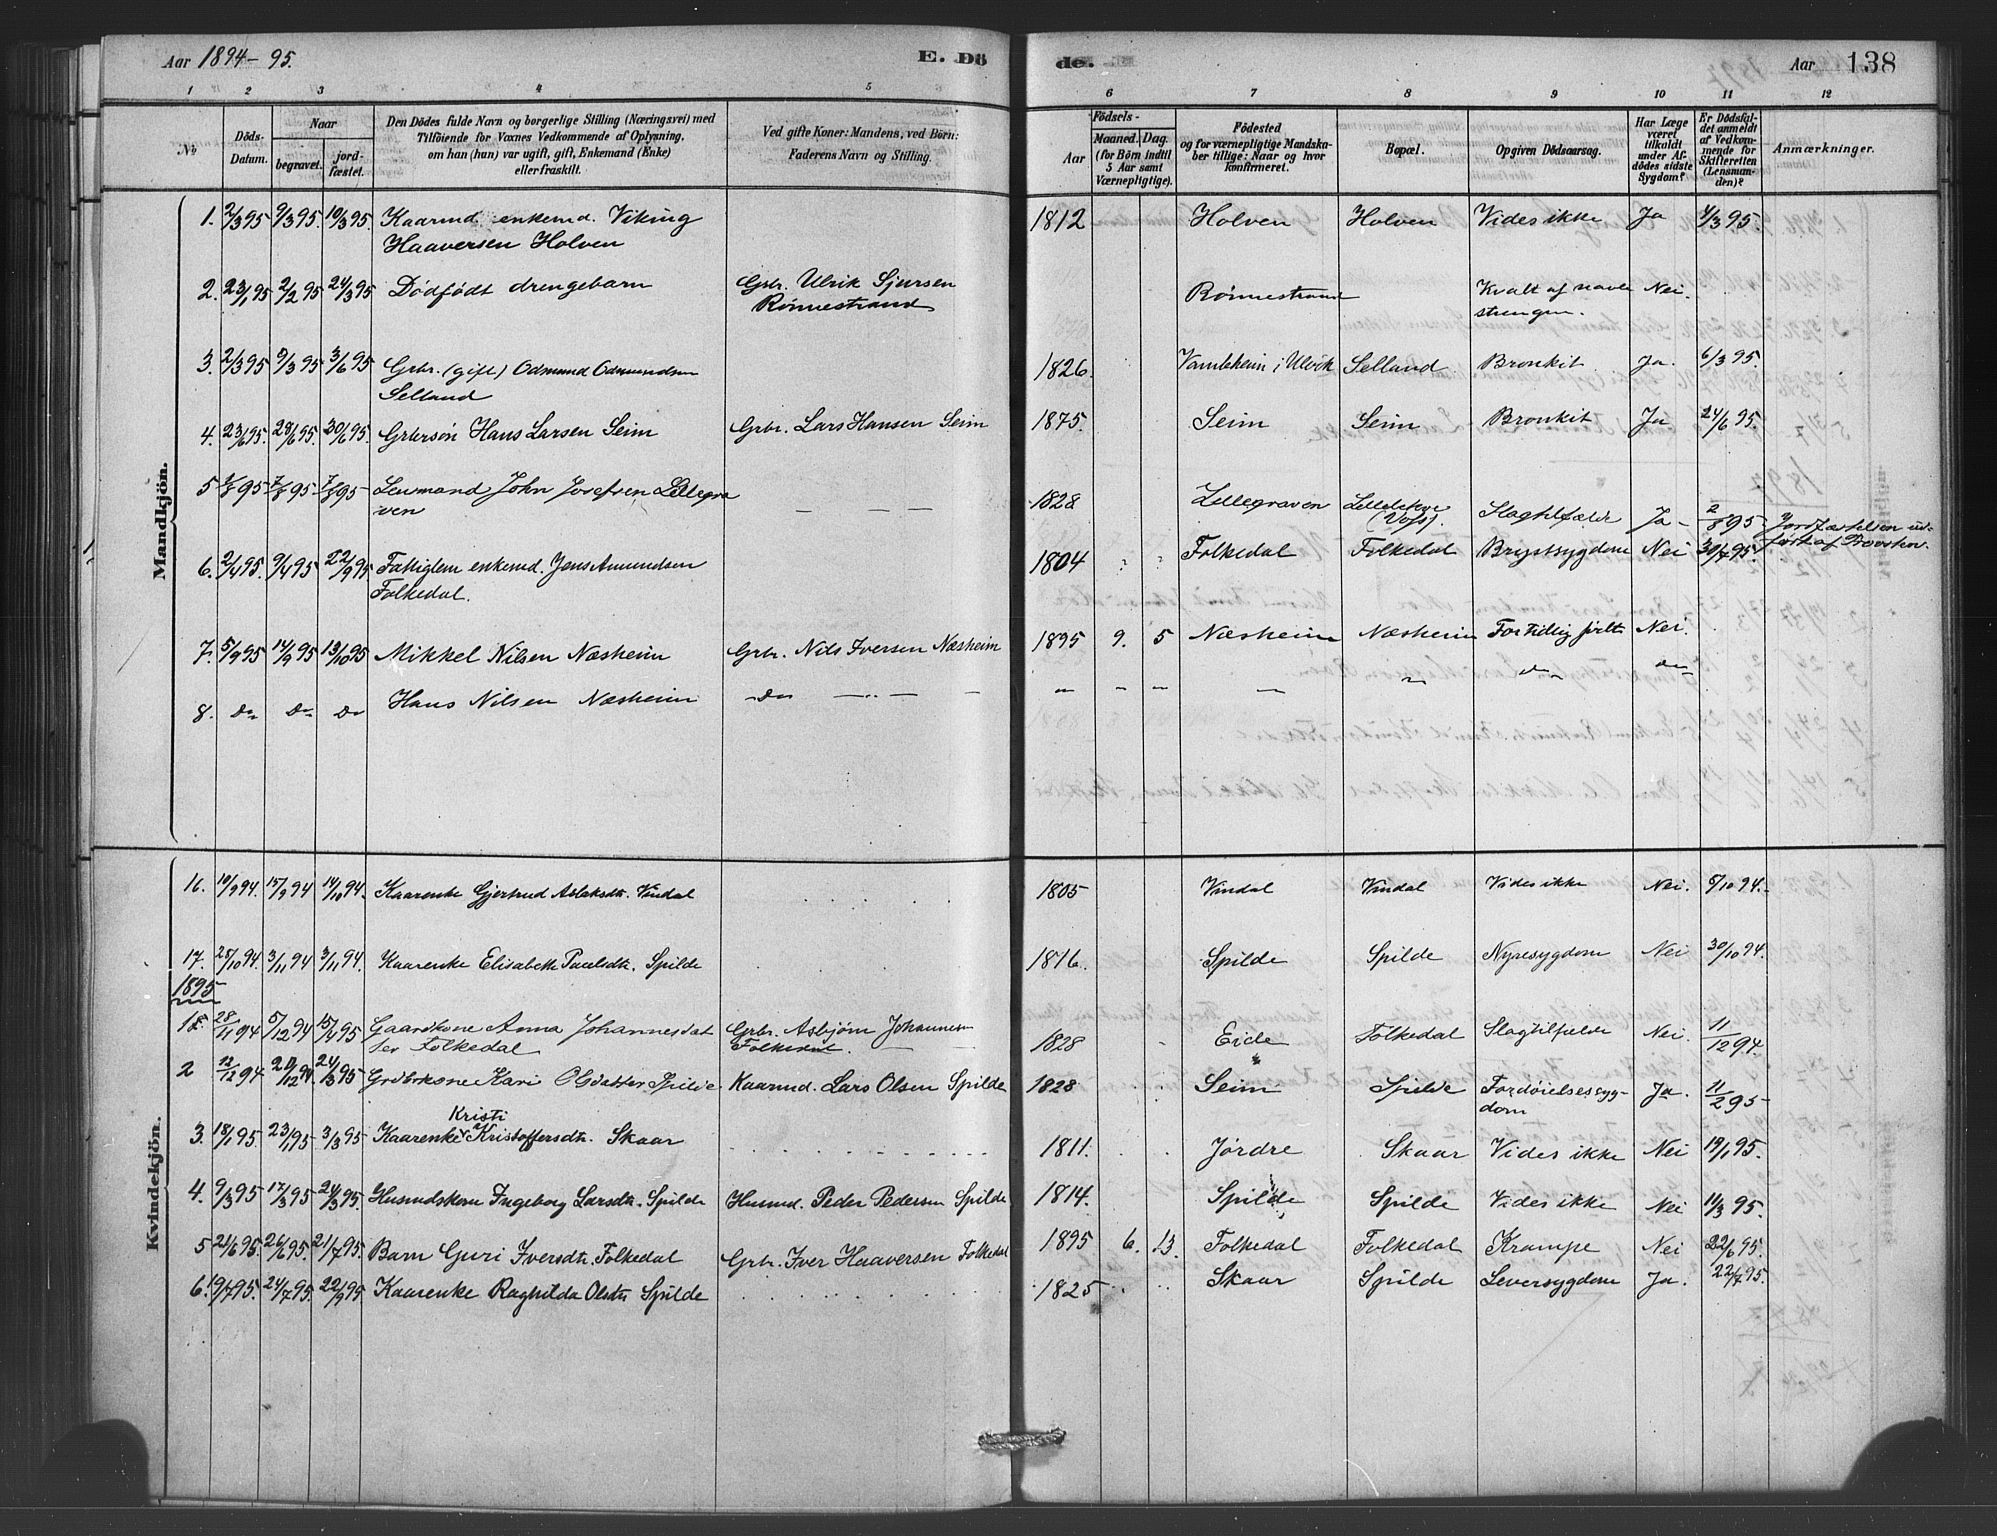 Aar 1894-95.
E. Dö
de.
Aar 138
1 2 3 4 5 6 7 8 9 10 11 12
No
Döds-
Datum.
Naar
begravet.
jord-
fæstet.
Den Dödes fulde Navn og borgerlige Stilling (Næringsvei) med
Tilföiende for Voxnes Vedkommende af Oplysning,
om han (hun) var ugift, gift, Enkemand (Enke)
eller fraskilt.
Ved gifte Koner: Mandens, ved Börn:
Faderens Navn og Stilling.
Födsels-
Aar
Maaned. Dag.
(for Börn indtil
5 Aar samt
Værnepligtige).
Födested
og for værnepligtige Mandska-
ber tillige: Naar og hvor
konfirmeret.
Bopæl.
Opgiven Dödsaarsag.
Har Læge
været
tilkaldt
under Af-
dödes sidste
Sygdom?
Er Dödsfal-
det anmeldt
af Vedkom-
mende for
Skifteretten
(Lensman-
den)?
Anmærkninger.
Mandkjön.
1. 2/3 95 9/3 95 10/3 95 Kaarmd. enkemd. Viking 1812 Holven Holven Vides ikke Ja 4/3 95
Haaversen Holven
2. 23/1 95 2/2 95 24/3 95 Dödfödt drengebarn Grbr. Ulrik Sjursen Rönnestrand Kvalt af navle Nei.
Rönnestrand strengen.
3. 2/3 95 9/3 95 3/6 95 Grbr. (gift) Odmund Odmundsen 1826. i Ulvik Selland Bronkit Ja. 6/3 95.
Selland
4. 23/6 95. 28/6 95. 30/6 95. Grbrsön Hans Larsen Seim Grbr. Lars Hansen Seim 1875. Seim Seim Bronkit Ja 24/6 95.
5 /8 95 7/8 95 7/8 95 Lensmand John Josefsen Lillegra 1828 Lillegraven (Voss). Slagtilfælde Ja - 2/8 95 Jordfæstelsen ud-
ven — — — fört af Provsten.
6. 2/4 95. 9/4 95 22/9 95 Fattiglem enkemd. Jens Amundsen 1804 " " Folkedal Folkedal Brystsygdom Nei 30/7 95.
Folkedal.
7. 5/9 95 14/9 95 13/10 95 Mikkel Nilsen Næsheim Grbr. Nils Iversen Næsheim 1895 9. 5 Næsheim Næsheim For tidlig født Nei.
8. Do Do Do Hans Nilsen Næsheim — Do — " — — " " " — " Do Do
Kvindekjön.
16. 10/9 94. 15/9 94 14/10 94. Kaarenke Gjertrud Aslaksdtr. Vindal 1805 Vindal Vindal Vides ikke Nei. 5/10 94.
17. 25/10 94. 3/11 94 3/11 94. Kaarenke Elisabeth Paulsdtr. Spilde 1816. Spilde Spilde Nyresygdom Nei 30/10 94.
1895
18. 28/11 94 5/12 94 15/4 95 Gaardkone Anna Johannesdat Grbr. Asbjörn Johannes 1828 Eide Folkedal Slagtilfælde Nei. 11/12 94.
ter Folkedal Folkedal.
2 12/12 94 20/12 94. 24/3 95 Grdbrkone Kari Olsdatter Spilde Kaarmd. Lars Olsen Spilde 1828 Seim Spilde Fordöielsessyg- Ja. 11/2 95
dom
Kristi
3. 18/1 95. 23/1 95 3/3 95 Kaarenke Kristoffersdtr. Skaar 1811. Jördre Skaar Vides ikke Nei 19/1 95.
4. 9/3 95 17/3 95 24/3 95. Husmdskone Ingeborg Larsdtr. Spilde Husmd. Peder Pedersen Spilde 1814. Spilde Spilde Vides ikke Nei 11/3 95.
5 21/6 95. 26/6 95. 21/7 95. Barn Guri Iversdtr. Folkedal Grbr. Iver Haaversen Folkedal 1895 6. 13. Folkedal Folkedal Krampe Nei 22/6 95.
6. 19/7 95. 24/7 95. 22/9 95. Kaarenke Raghilda Olsdtr Spilde 1825 Skaar Spilde Leversygdom Ja. 22/7 95.